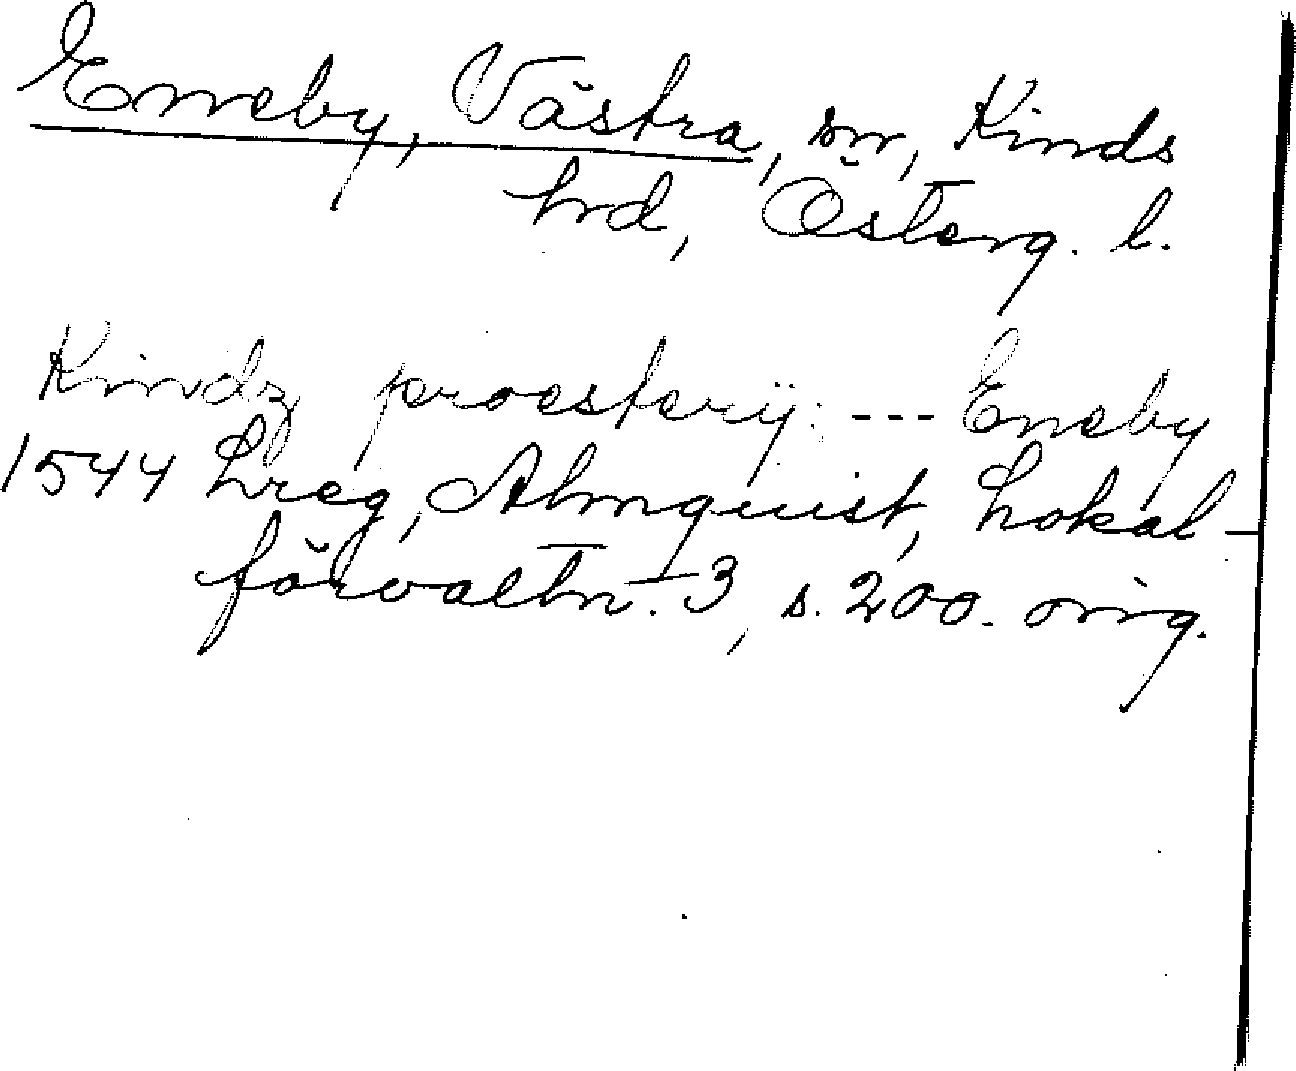 Eneby, Västra, sn, Kinds
hd, Österg. l.
Kindz proesterij: --- Eneby
1544 Lreg, Almquist, Lokal-
förvaltn. 3, s. 200. orig.